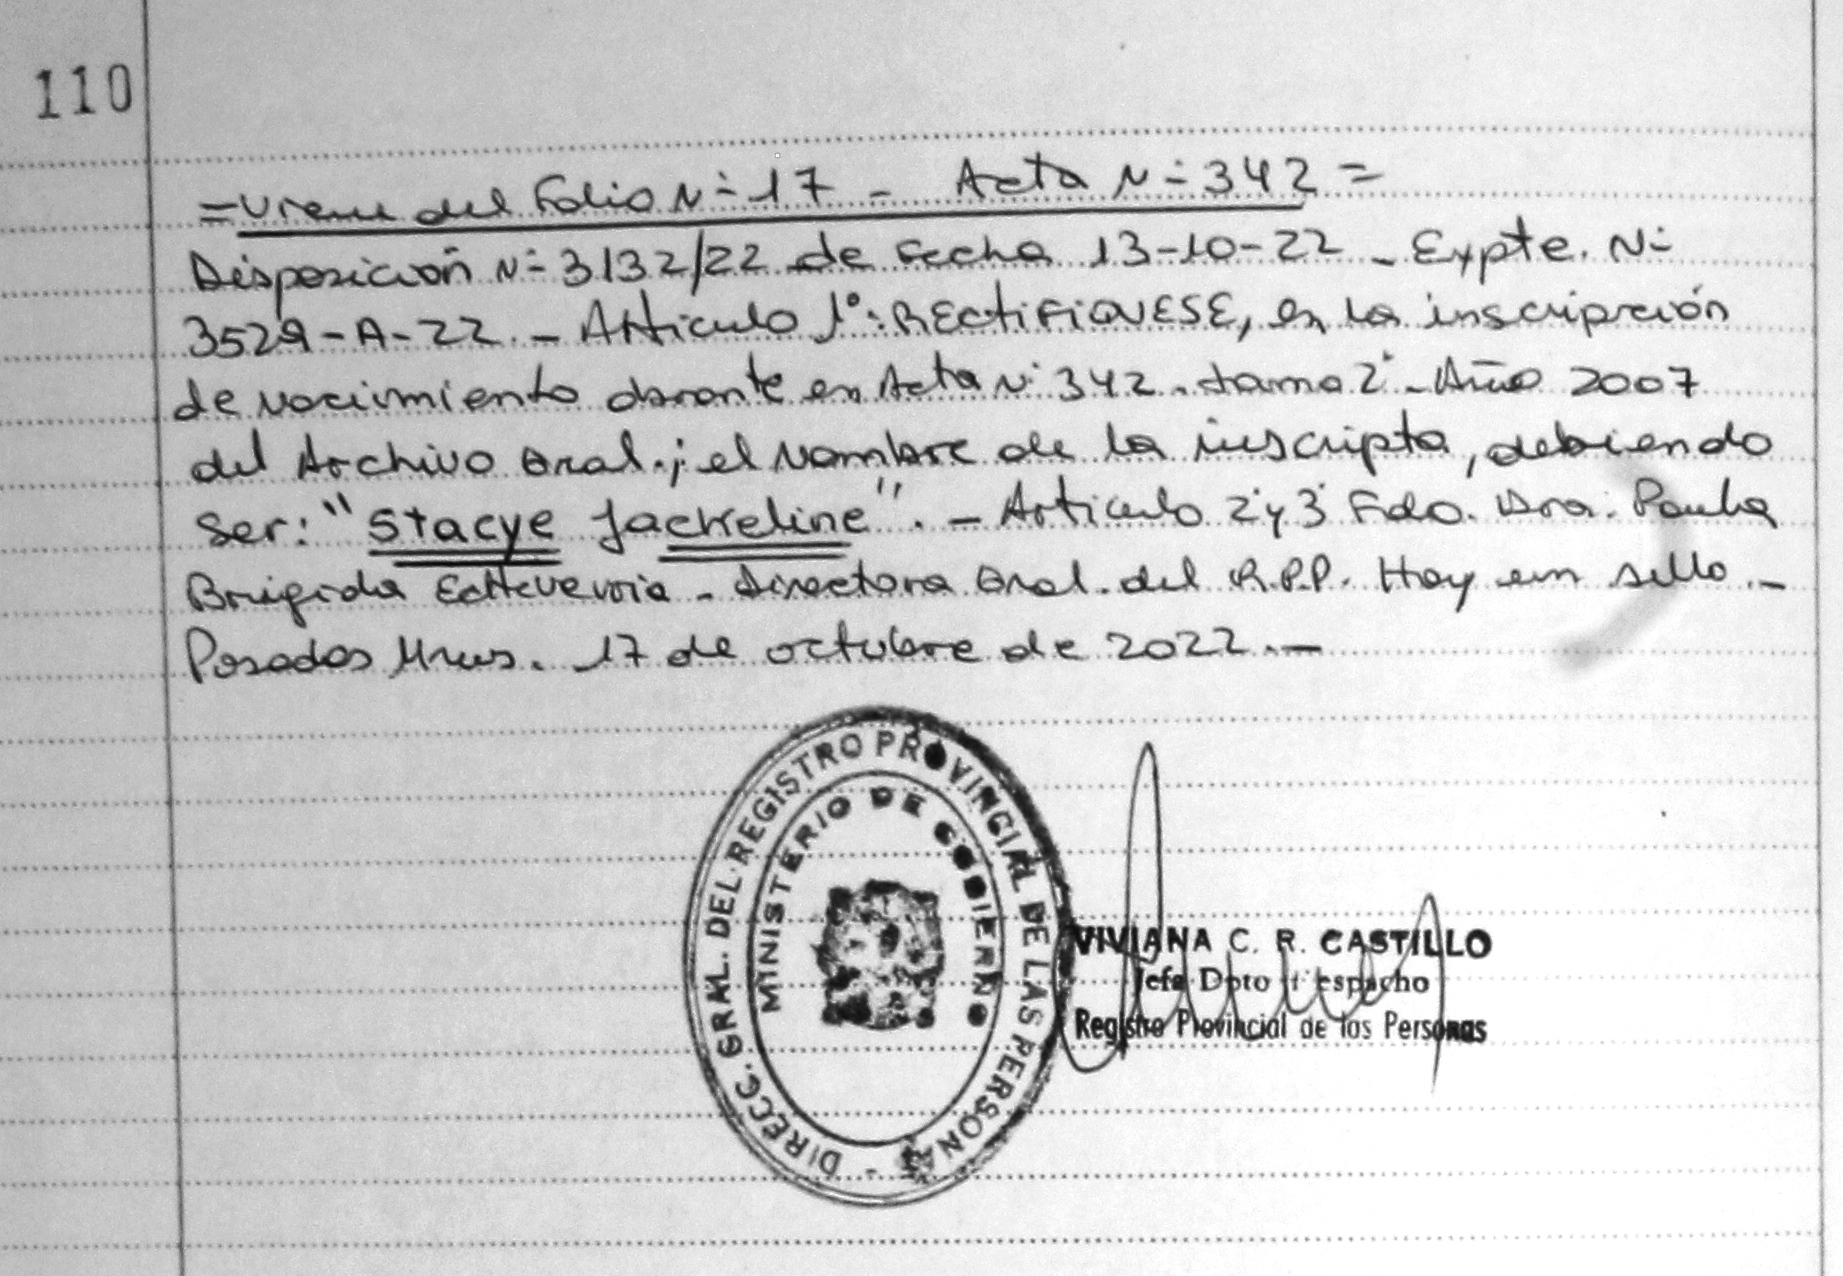 110
= Viene del Folio N° 17 - Acta N° 342 =
Disposición N° 3132/22 de fecha 13-10-22 - Expte. N°
3529-A-22. - Artículo 1°: RECTIFIQUESE, en la inscripción
de nacimiento obrante en Acta N° 342. tomo 2° - Año 2007
del Archivo Gral.; el nombre de la inscripta, debiendo
ser: "Stacye Jackeline". - Artículo 2° y 3° Fdo. Dra. Paula
Brigida Echeverria - Directora Gral. del R.P.P. Hay un sello. -
Posadas Mnes. 17 de octubre de 2022. -
DIRECC. GRAL. DEL REGISTRO PROVINCIAL DE LAS PERSONAS -
MINISTERIO DE GOBIERNO
VIVIANA C. R. CASTILLO
Jefa Dpto Despacho
Registro Provincial de las Personas